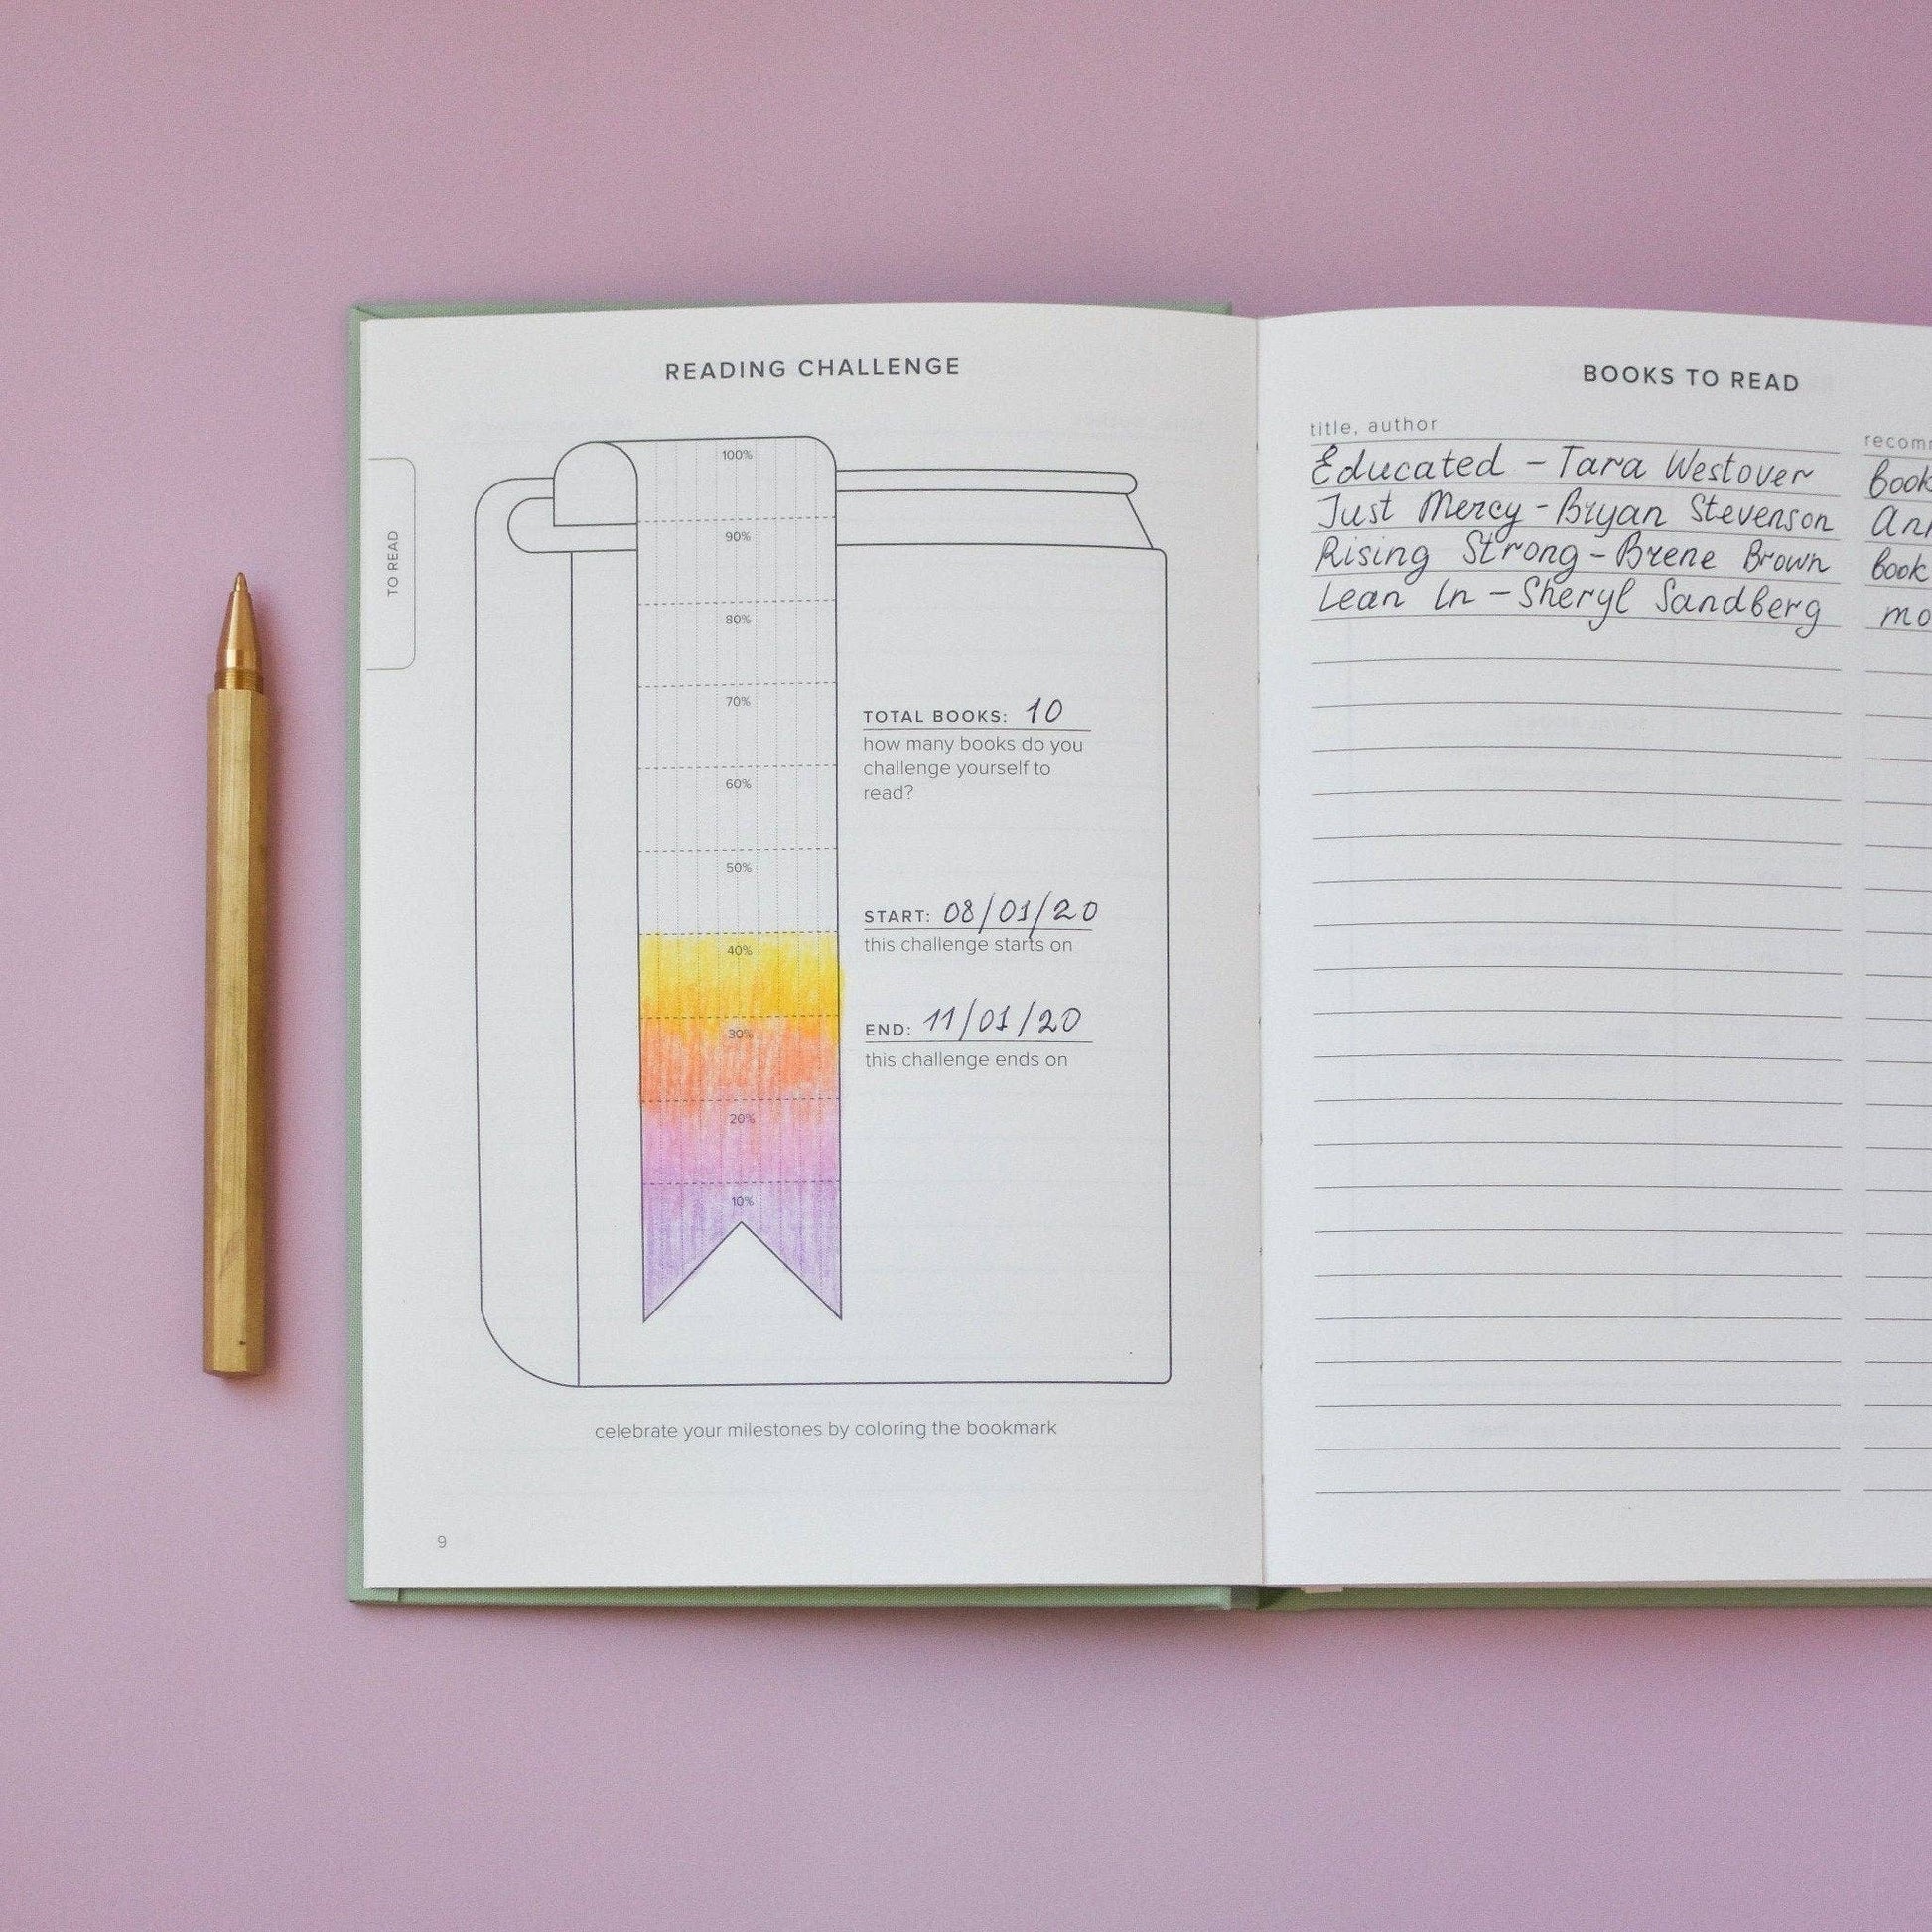 READING CHALLENGE
TO READ
100%
90%
80%
70%
60%
50%
40%
30%
20%
10%
TOTAL BOOKS: 10
how many books do you
challenge yourself to
read?
START: 08/01/20
this challenge starts on
END: 11/01/20
this challenge ends on
celebrate your milestones by coloring the bookmark
9
BOOKS TO READ
title, author
Educated - Tara Westover
Just Mercy - Bryan Stevenson
Rising Strong - Brene Brown
Lean In - Sheryl Sandberg
book